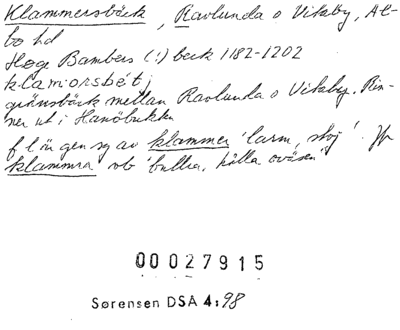 Klammersbäck, Ravlunda o Vitaby, Al-
bo hd
Hoge Bambers (!) beck 1182-1202
klamorsbet;
gränsbäck mellan Ravlunda o Vitaby. Rin-
ner ut i Hanöbukten
f l i n gen sg av klammer 'larm, stoj'. Jfr
klammra vb 'bullra, hålla oväsen'
00027915
Sørensen DSÅ 4:98